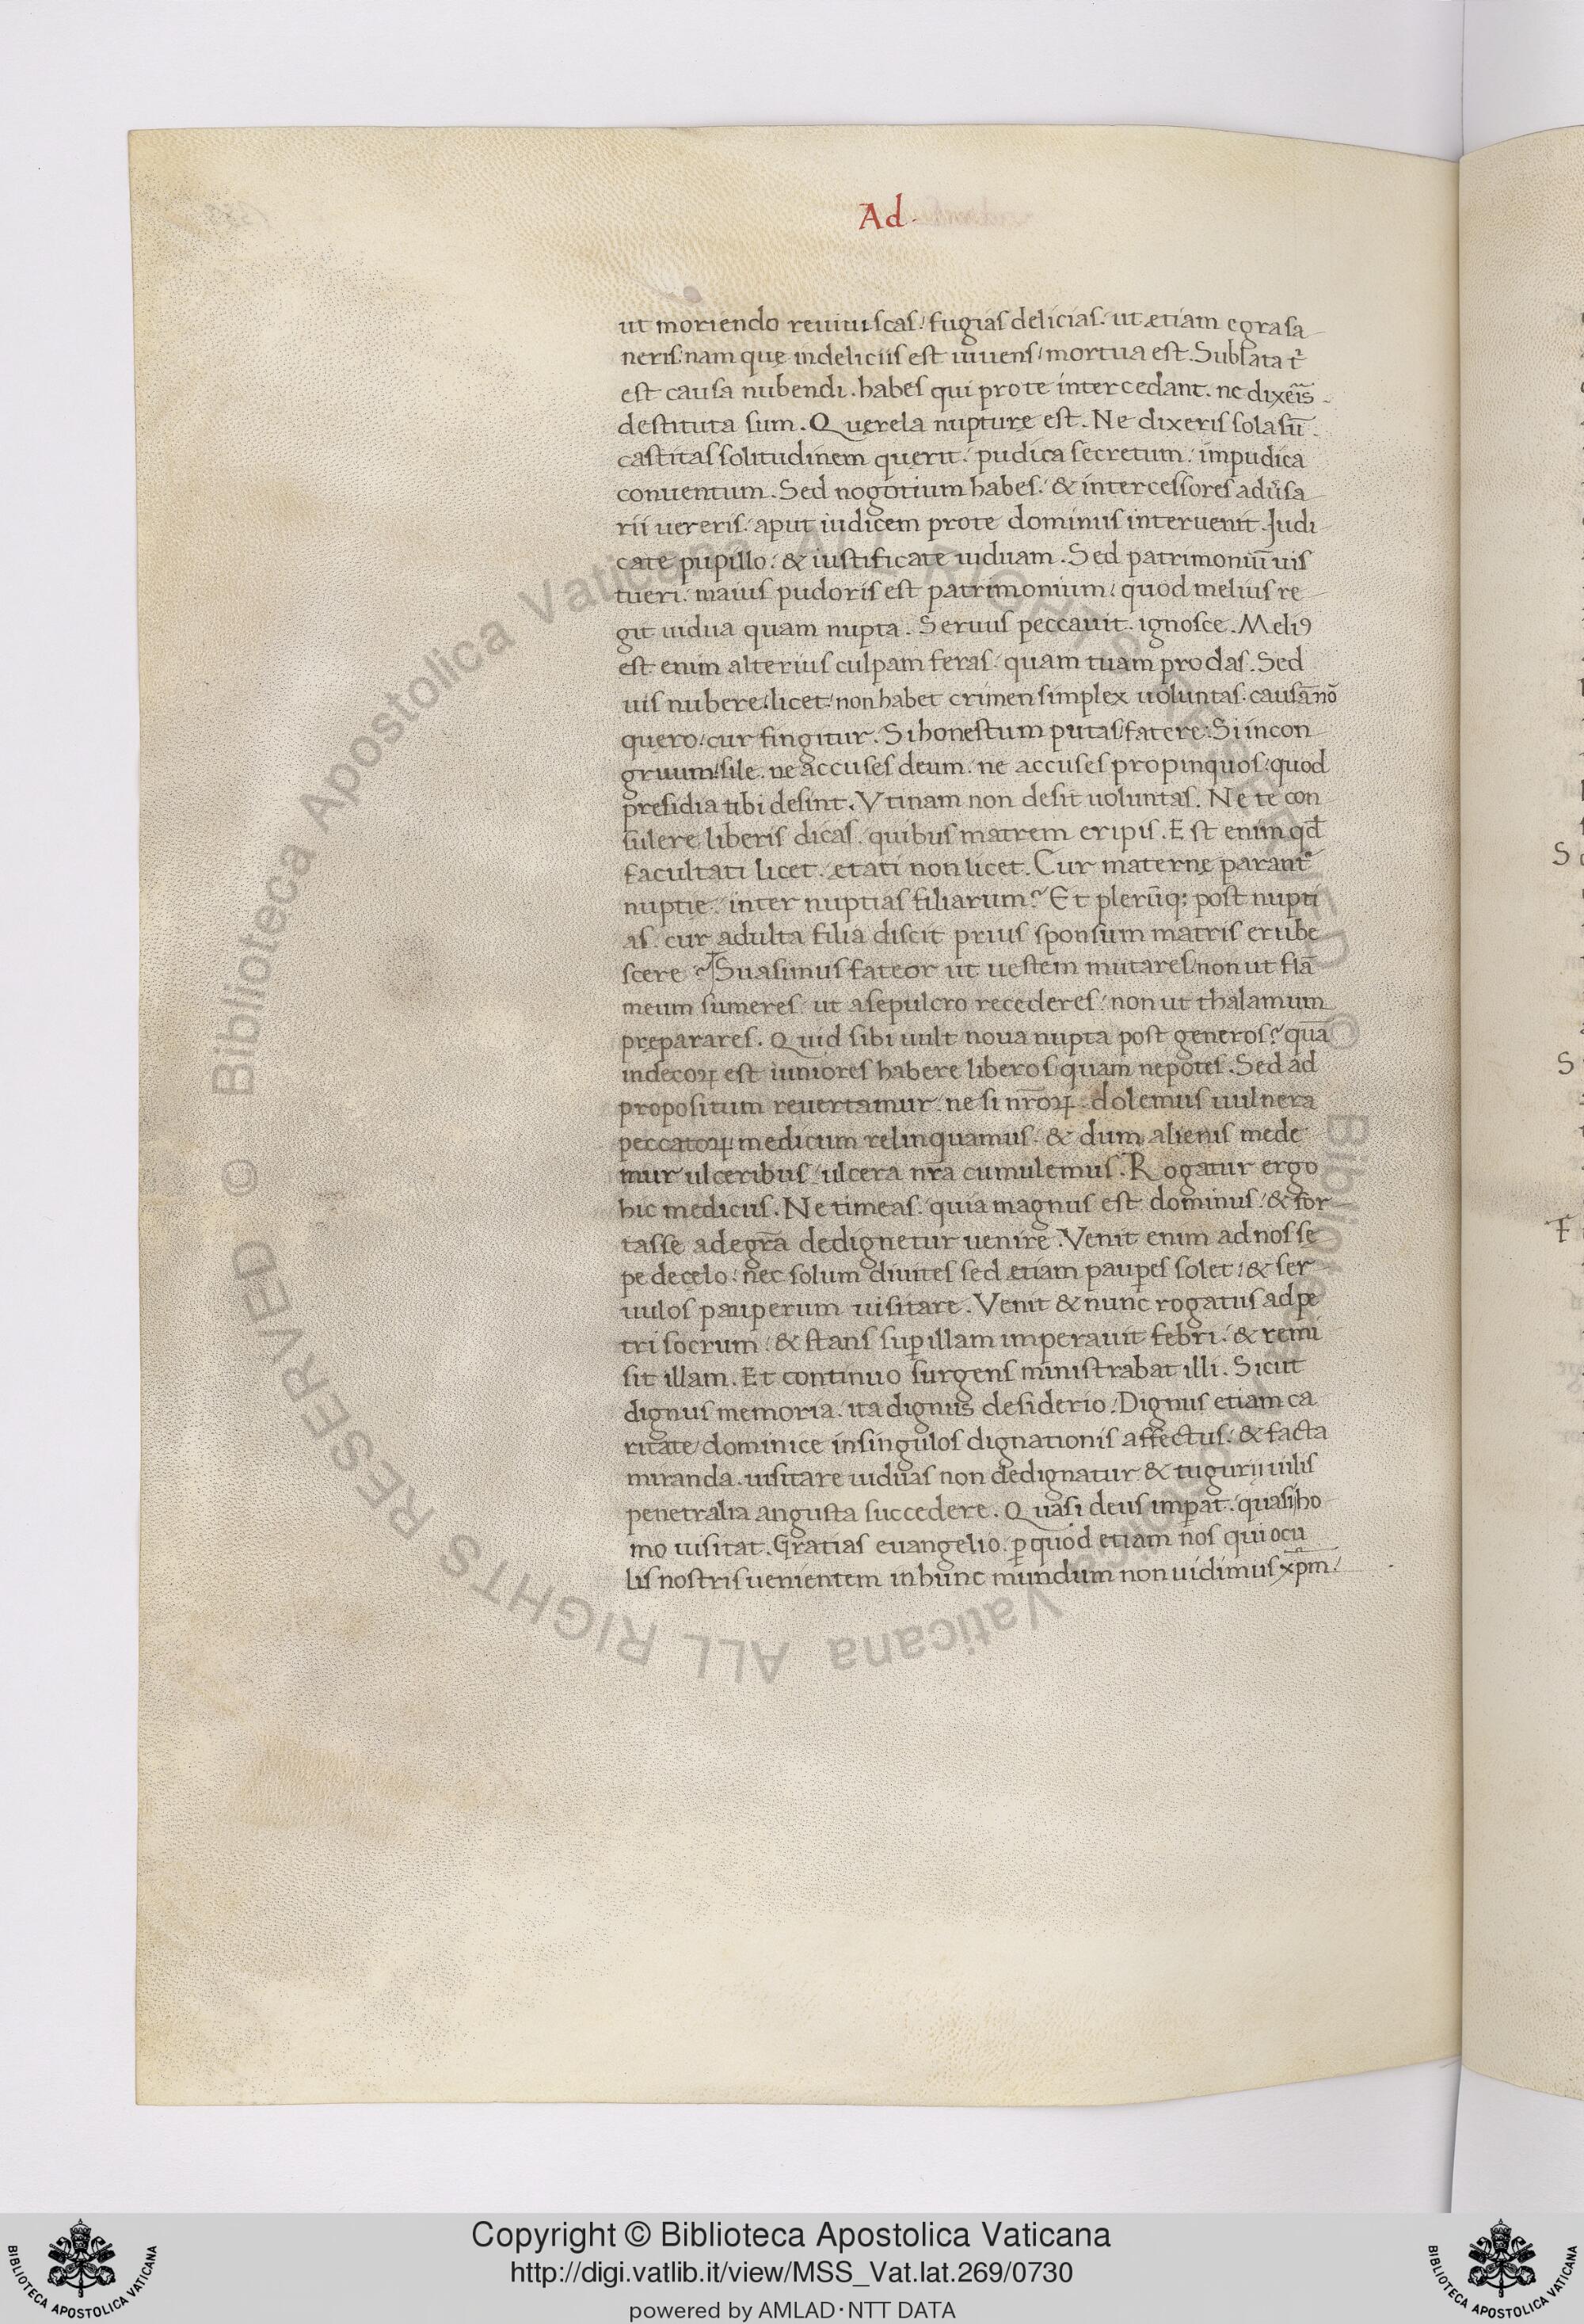 Ad.
ut moriendo reuiuiscas. fugias delicias. ut ætiam egra sa
neris. nam quę in deliciis est uiuens. mortua est. Sublata t̄
est causa nubendi. habes qui pro te intercedant. ne dixeris
destituta sum. Querela nupturę est. Ne dixeris sola sū.
castitas solitudinem querit. pudica secretum. impudica
conuentum. Sed nogotium habes. & intercessores adūsa
rii uereris. aput iudicem pro te dominus interuenit. Judi
cate pupillo. & iustificate uiduam. Sed patrimoniū uis
tueri. maius pudoris est patrimonium. quod melius re
git uidua quam nupta. Seruus peccauit. ignosce. Meliꝰ
est enim alterius culpam feras. quam tuam prodas. Sed
uis nubere. licet. non habet crimen simplex uoluntas. causā nō
quero. cur fingitur. Si honestum putas. fatere. Si incon
gruum. sile. ne accuses deum. ne accuses propinquos. quod
presidia tibi desint. Vtinam non desit uoluntas. Ne te con
sulere liberis dicas. quibus matrem eripis. Est enim qđ
facultati licet. ætati non licet. Cur maternę parant᷑
nuptię. inter nuptias filiarum? Et plerūq; post nupti
as. cur adulta filia discit prius sponsum matris erube
scere? Suasimus fateor ut uestem mutares. non ut flā
meum sumeres. ut a sepulcro recederes. non ut thalamum
preparares. Quid sibi uult noua nupta post generos? quā
indecoꝝ est iuniores habere liberos quam nepotes. Sed ad
propositum reuertamur. ne si nr̄oꝝ dolemus uulnera
peccatoꝝ medicum relinquamus. & dum alienis mede
mur ulceribus. ulcera nr̄a cumulemus. Rogatur ergo
hic medicus. Ne timeas. quia magnus est dominus. & for
tasse ad egrā dedignetur uenire. Venit enim ad nos sę
pe de cęlo. nec solum diuites sed ætiam paupes solet. & ser
uulos pauperum uisitare. Venit & nunc rogatus ad pe
tri socrum. & stans suꝑ illam imperauit febri. & remi
sit illam. Et continuo surgens ministrabat illi. Sicut
dignus memoria. ita dignus desiderio. Dignus etiam ca
ritate dominice in singulos dignationis affectus. & facta
miranda. uisitare uiduas non dedignatur & tugurij uilis
penetralia angusta succedere. Quasi deus imꝑat. quasi ho
mo uisitat. Gratias euangelio. ꝑ quod etiam nos qui ocu
lis nostris uenientem in hunc mundum non uidimus xp̄m.
S
S
F
© Biblioteca Apostolica Vaticana ALL RIGHTS RESERVED © Biblioteca Apostolica Vaticana ALL RIGHTS RESERVED
Copyright © Biblioteca Apostolica Vaticana
http://digi.vatlib.it/view/MSS_Vat.lat.269/0730
powered by AMLAD·NTT DATA
BIBLIOTECA APOSTOLICA VATICANA
BIBLIOTECA APOSTOLICA VATICANA